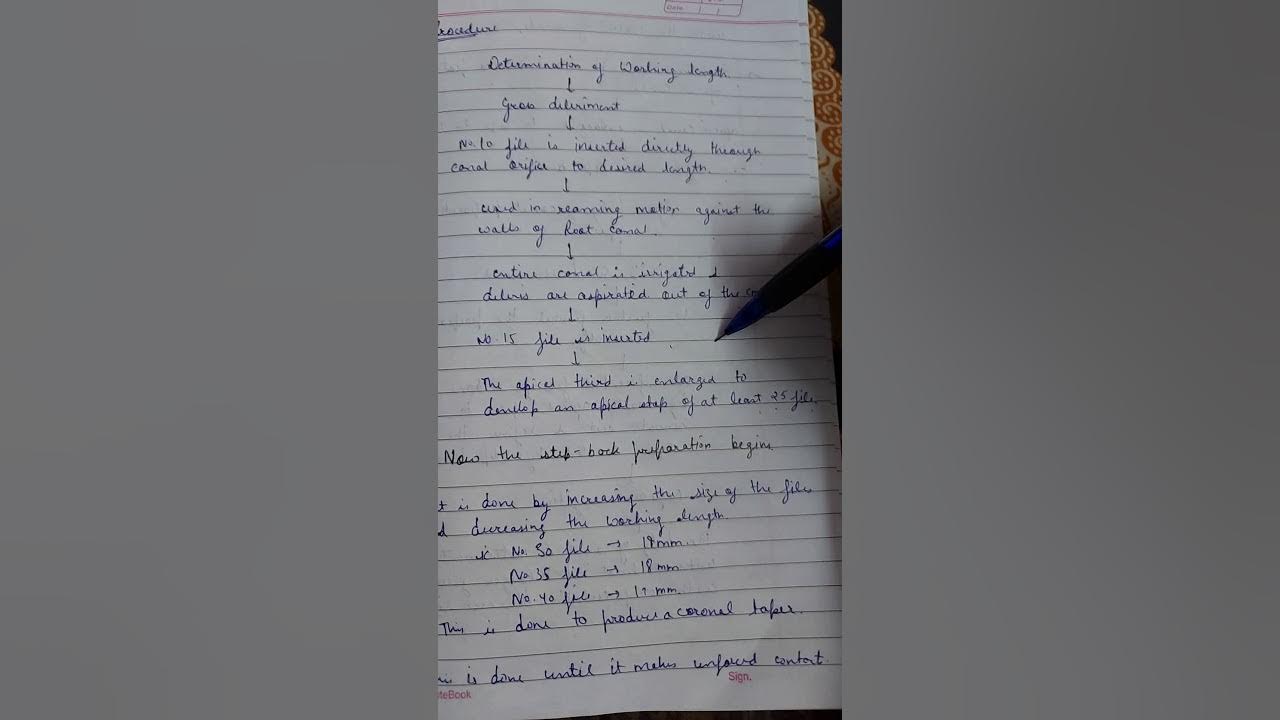 Date
rocedure
Determination of Working length.
↓
Gross debriment
↓
No. 10 file is inserted directly through
canal orifice to desired length.
↓
used in reaming motion against the
walls of Root canal.
↓
entire canal is irrigated &
debris are aspirated out of the
↓
No. 15 file is inserted
↓
The apical third is enlarged to
develop an apical stop of at least 25 file.
Now the step-back preparation begins.
t is done by increasing the size of the files
d decreasing the working length.
No. 30 file → 19mm.
No. 35 file → 18mm
No. 40 file → 17 mm.
This is done to produce a coronal taper.
is is done until it makes unforced contact.
Sign.
teBook